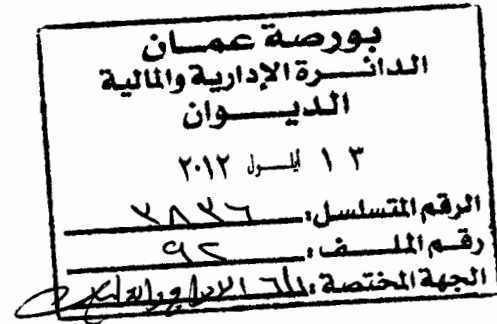 بورصة عمان
الدائرة الإدارية والمالية
الديوان
١٣ ايلول ٢٠١٢
الرقم المتسلسل: ٣٨٣٦
رقم الملف: ٩٢
الجهة المختصة: